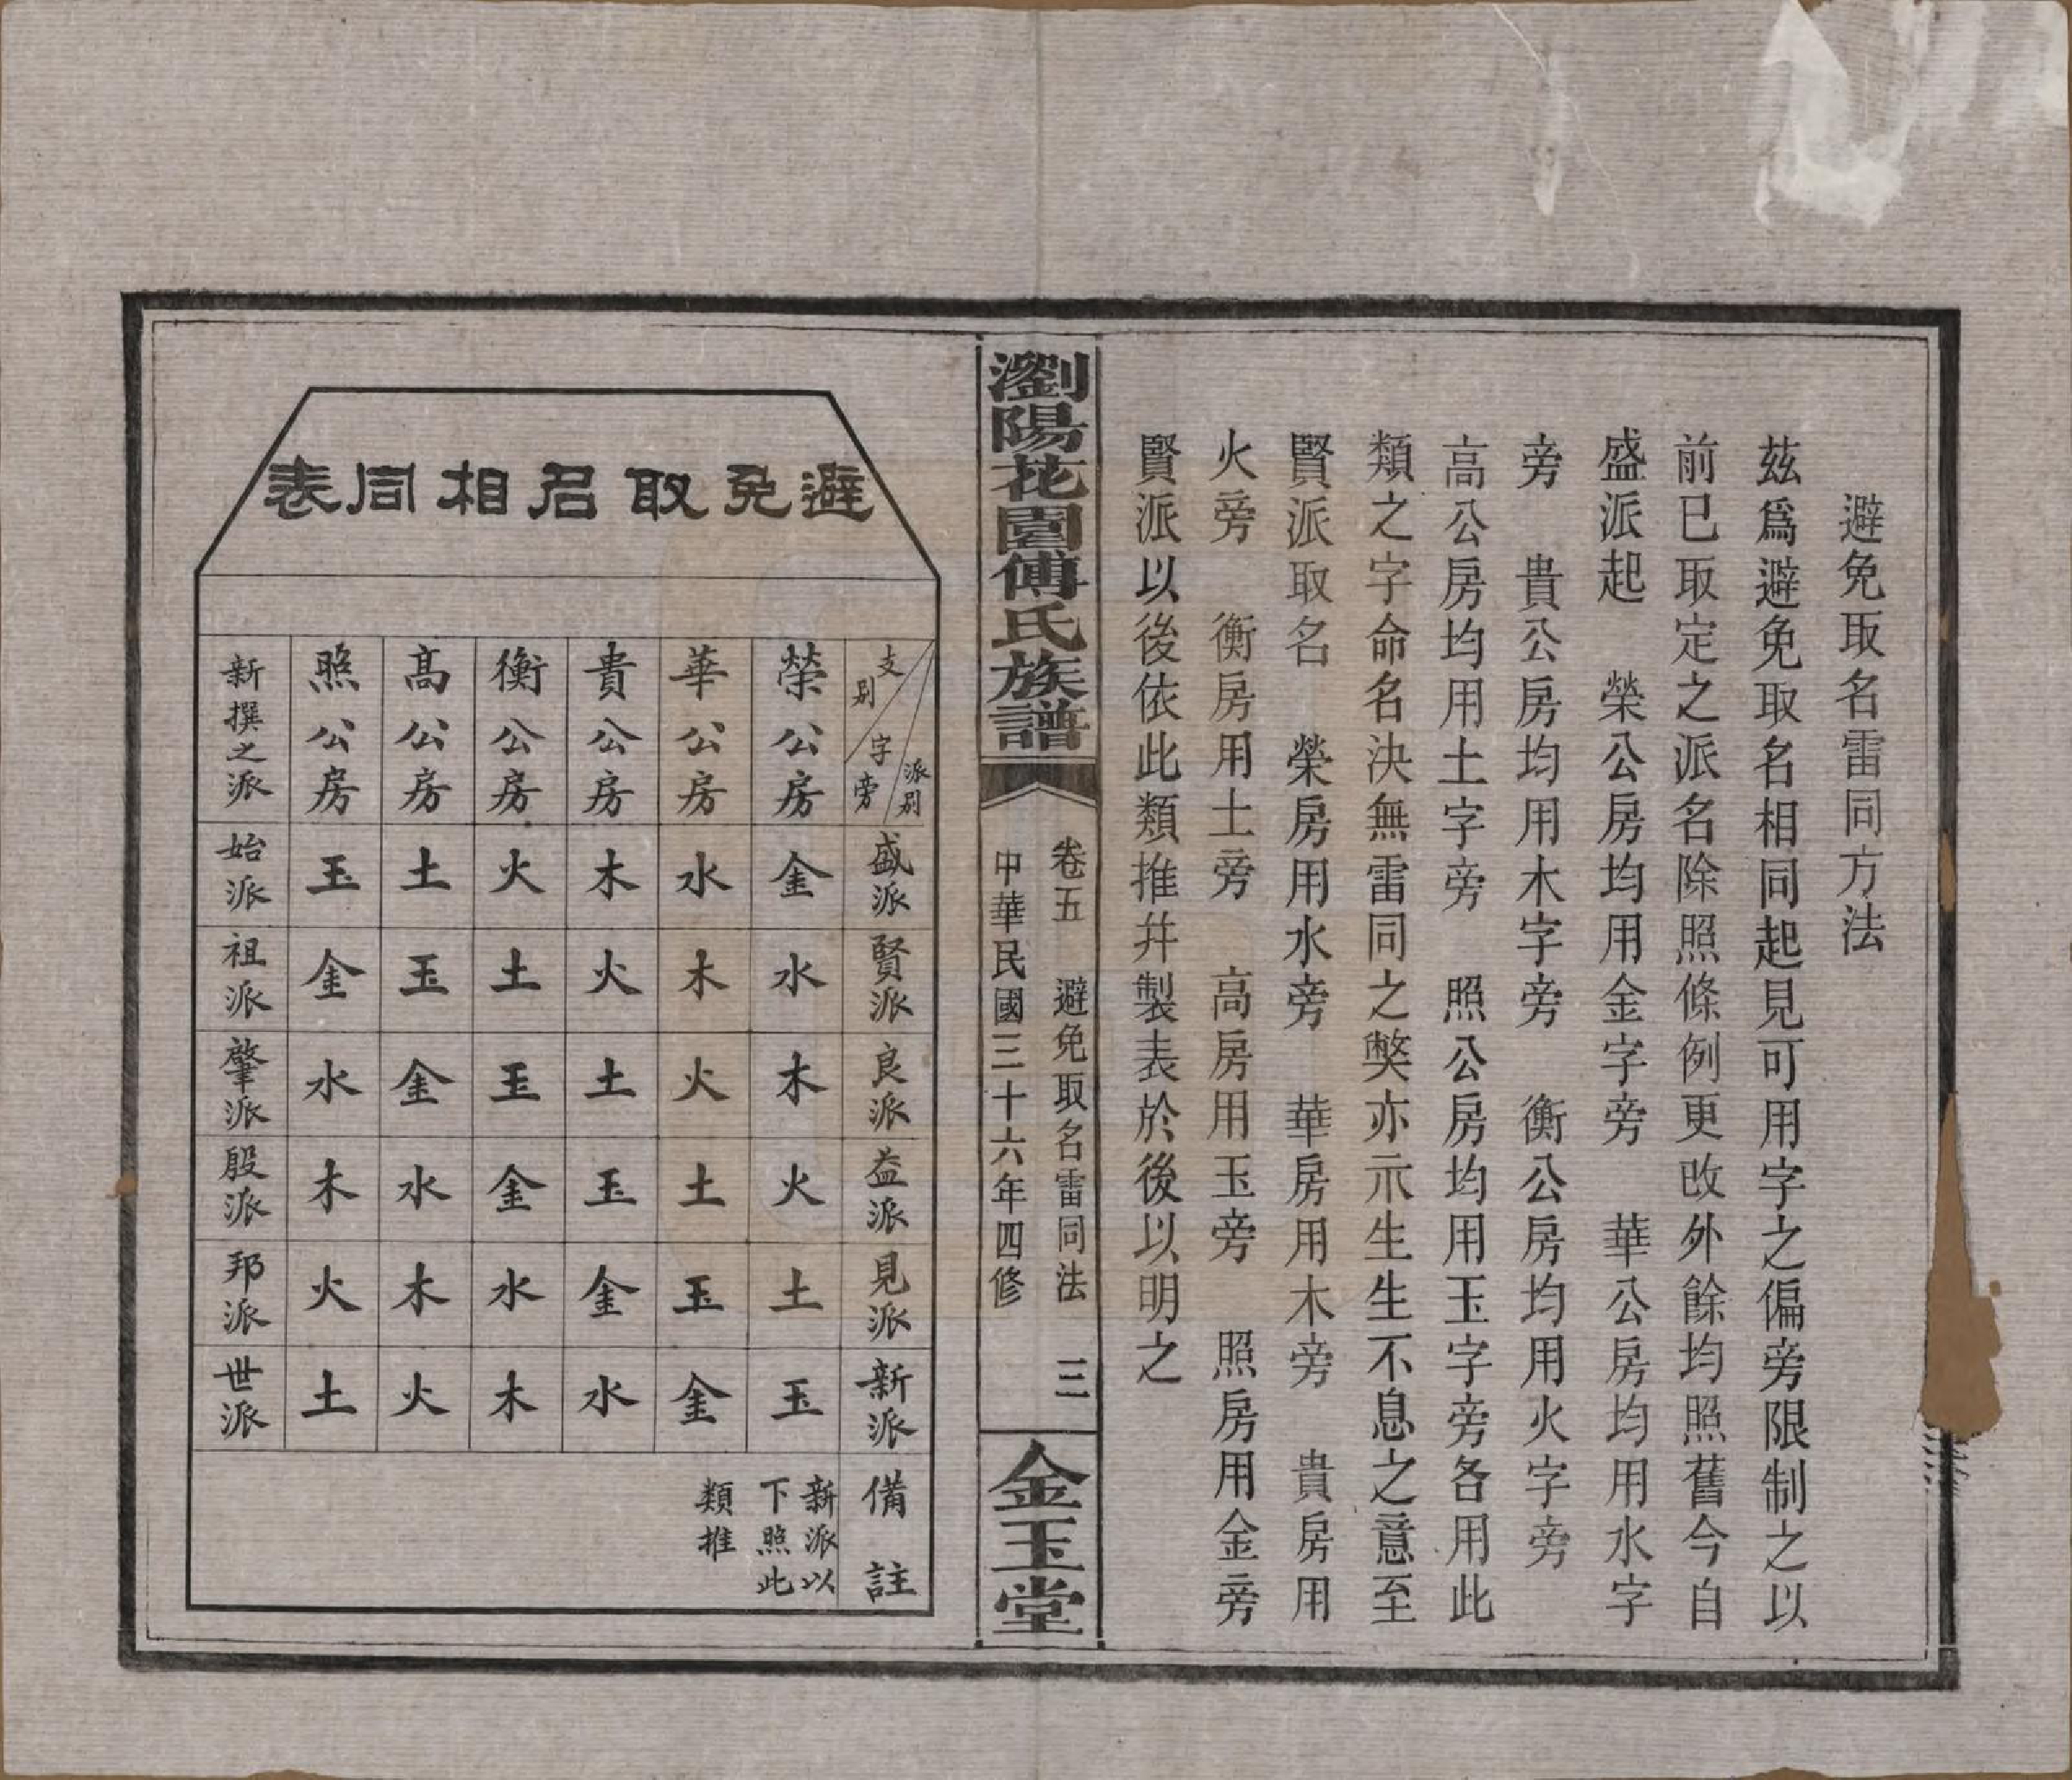 避免取名雷同方法
茲爲避免取名相同起見可用字之偏旁限制之以
前已取定之派名除照條例更改外餘均照舊今自
盛派起　榮公房均用金字旁　華公房均用水字
旁　貴公房均用木字旁　衡公房均用火字旁
高公房均用土字旁　照公房均用玉字旁各用此
類之字命名決無雷同之獘亦示生生不息之意至
賢派取名　榮房用水旁　華房用木旁　貴房用
火旁　衡房用土旁　高房用玉旁　照房用金旁
賢派以後依此類推幷製表於後以明之
瀏陽花園傅氏族譜
卷五　避免取名雷同法　三
中華民國三十六年四修
金玉堂
避免取名相同表
支别　字旁　派别　盛派　賢派　良派　益派　見派　新派　備註
榮公房　金　水　木　火　土　玉　新派以
華公房　水　木　火　土　玉　金　下照此
貴公房　木　火　土　玉　金　水　類推
衡公房　火　土　玉　金　水　木
高公房　土　玉　金　水　木　火
照公房　玉　金　水　木　火　土
新撰之派　始派　祖派　肇派　殷派　邦派　世派